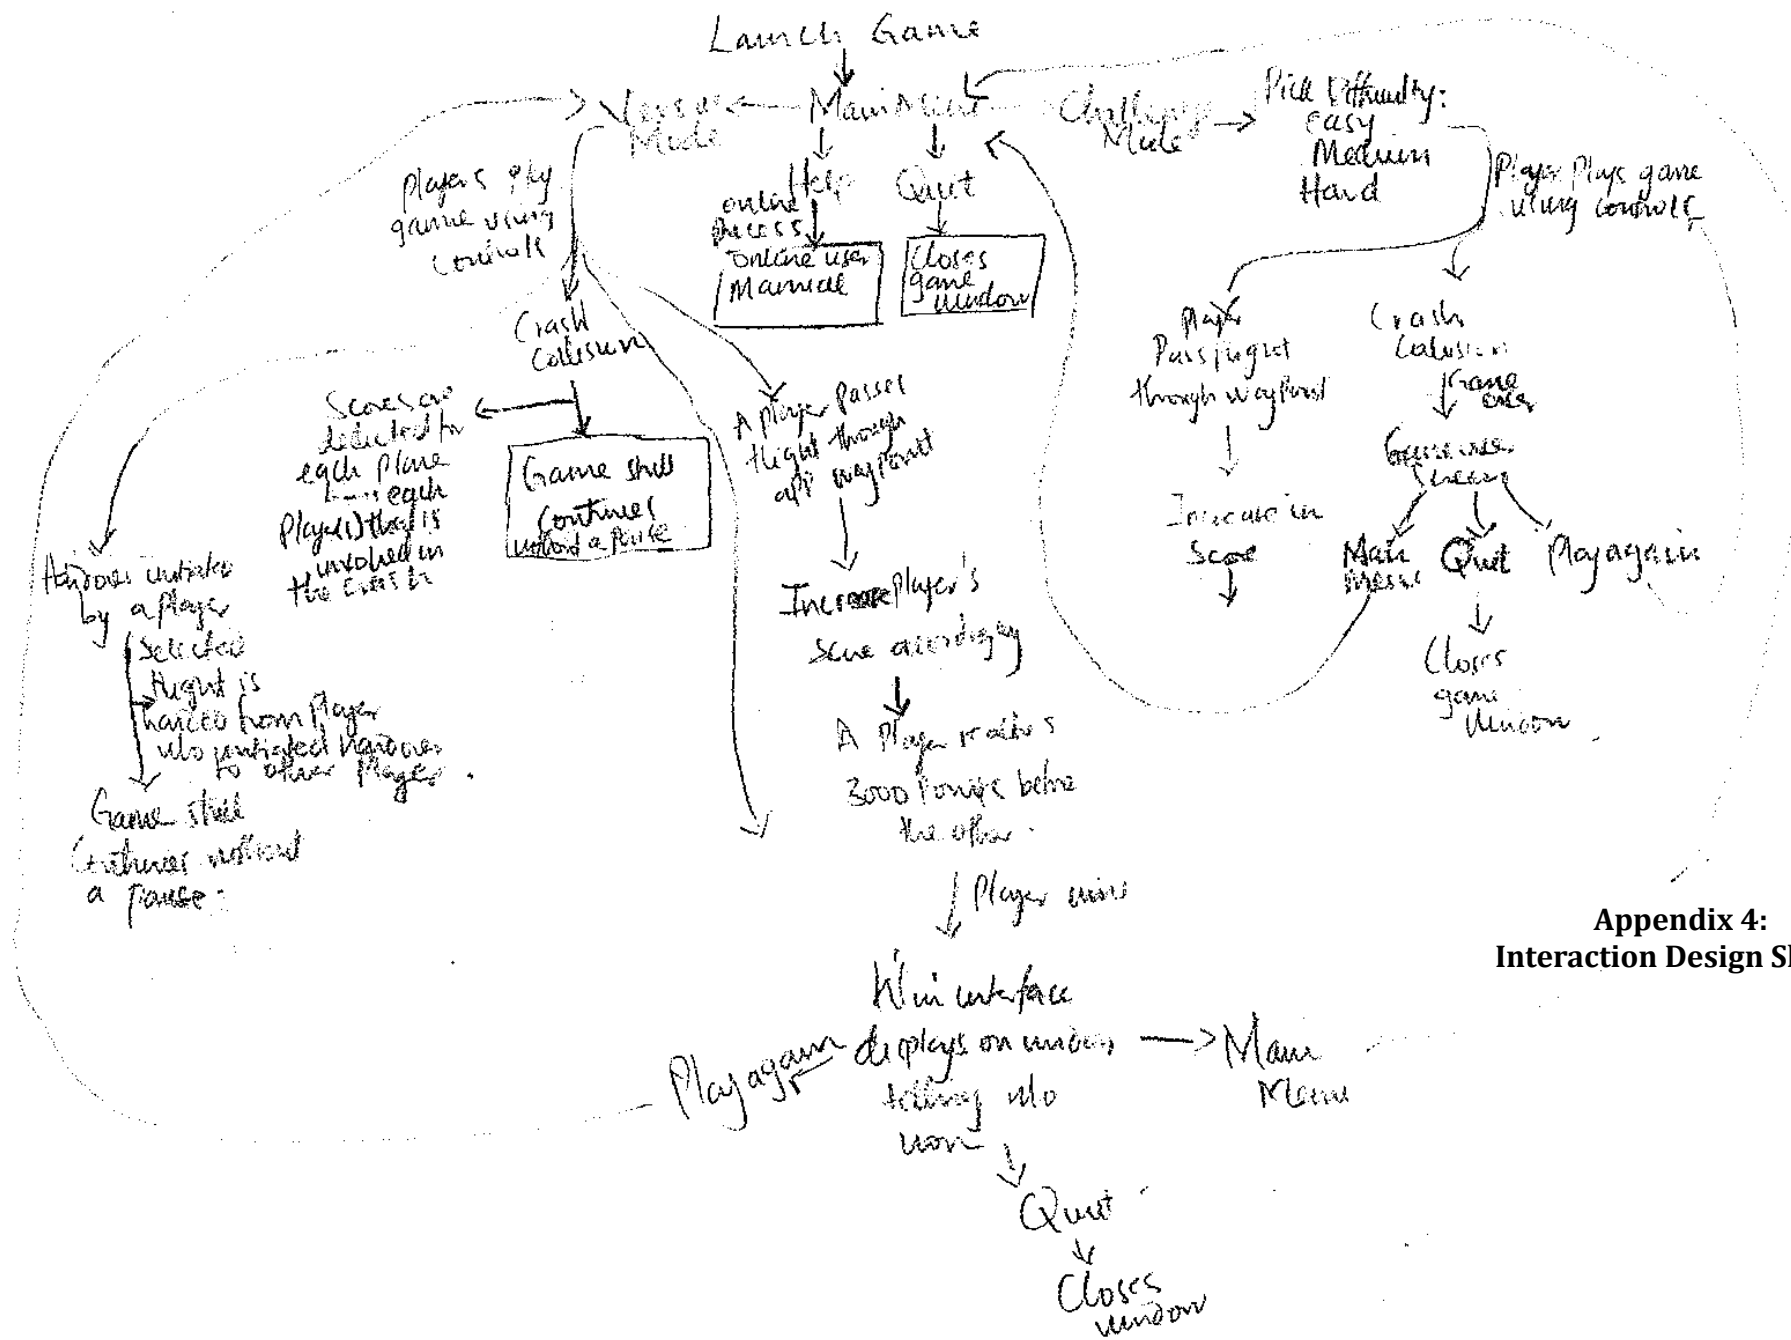 Launch Game
Main Menu
Mode
Challenge
Mode
Pick Difficulty:
easy
Medium
Hard
Players play
game using
controls
Help
online
process
online user
Manual
Quit
Closes
game
window
Player Plays game
using controls
Crash
Collision
Scores are
deducted for
each plane
each
Player(s) that is
involved in
the crash
Game still
continues
without a pause
A player passes
flight through
waypoint
Increase player's
score accordingly
A Player reaches
3000 Points before
the other.
Player wins
Win interface
displays on window
telling who
won
Play again
Main
Menu
Quit
Closes
window
Handover initiated
by a player
Selected
flight is
handed from player
who initiated handover
to other player.
Game still
Continues without
a pause.
Player
Pass flight
through waypoint
Increase in
Score
Crash
Collision
Game
over
Game over
Screen
Main
Menu
Quit
Play again
Closes
game
window
Appendix 4:
Interaction Design